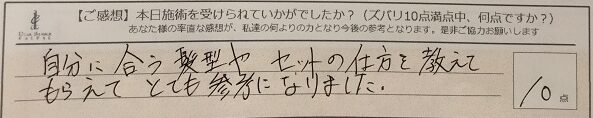 【ご感想】本日施術を受けられていかがでしたか？（ズバリ10点満点中、何点ですか？）
あなた様の率直な感想が、私達の何よりの力となり今後の参考となります。是非ご協力お願いします
自分に合う髪型や セットの仕方を教えて
もらえて とても参考になりました.
10点